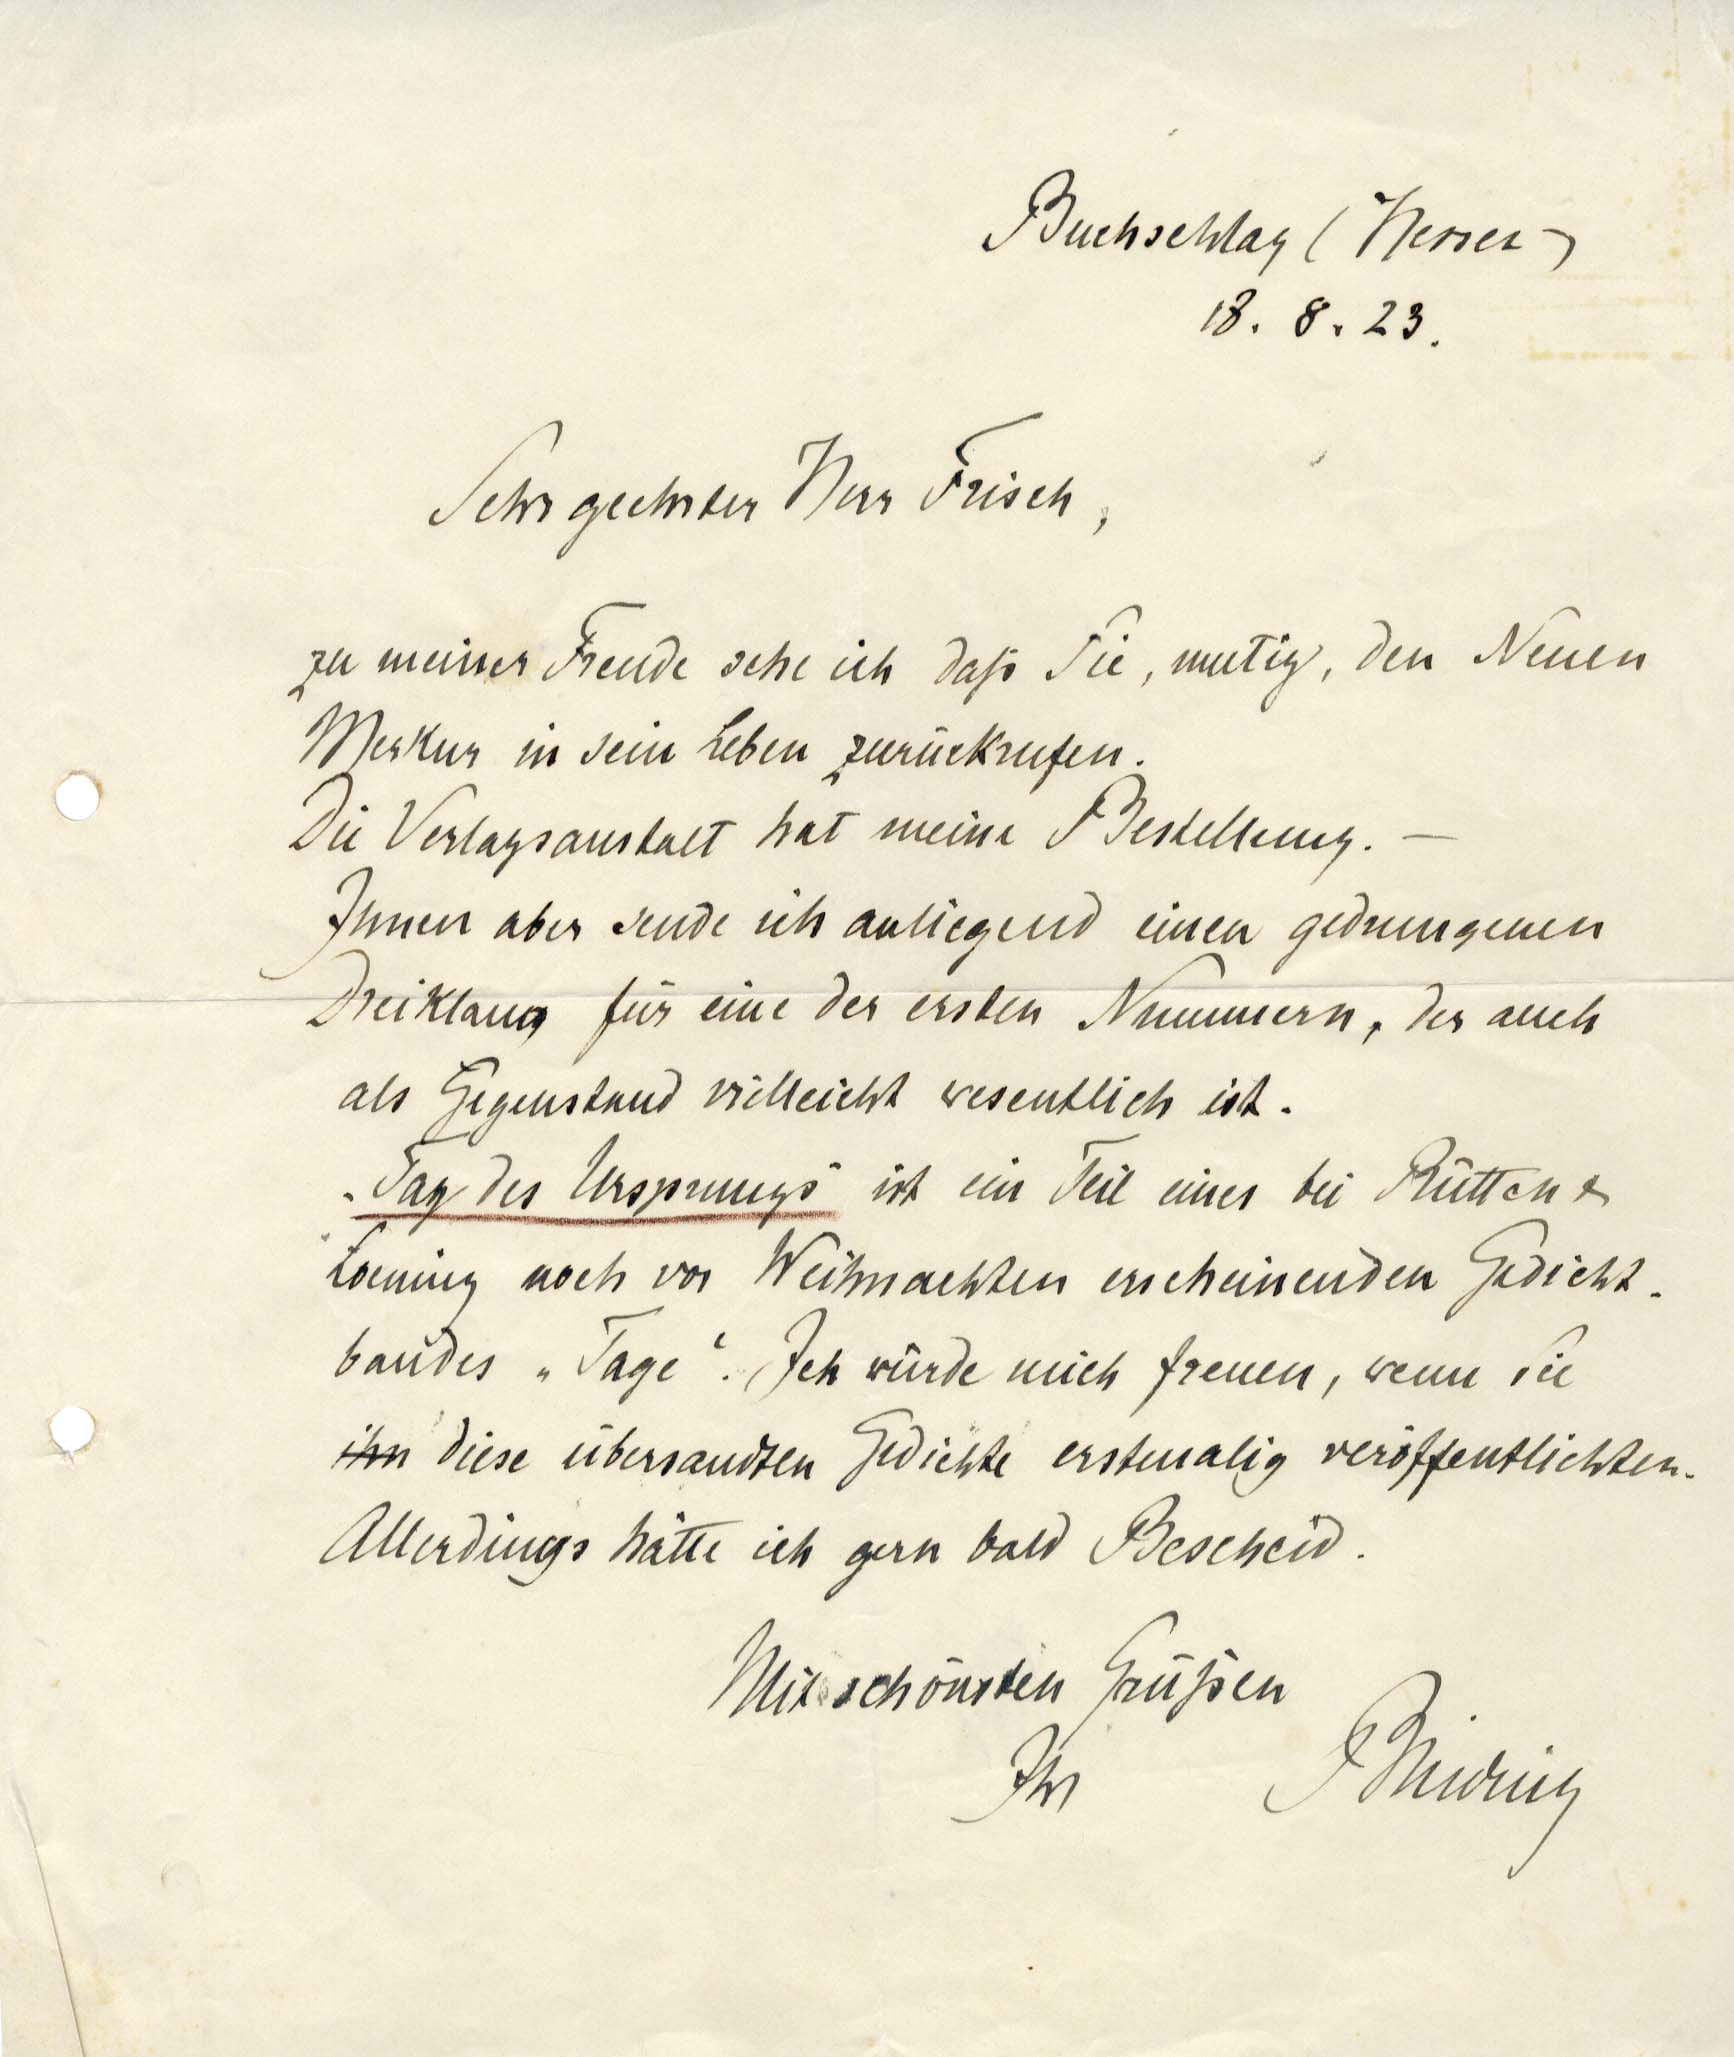 Buchschlag (Hessen)
18. 8. 23.
Sehr geehrter Herr Frisch,
zu meiner Freude sehe ich daß Sie, mutig, den Neuen
Merkur in sein Leben zurückrufen.
Die Verlagsanstalt hat meine Bestellung. —
Ihnen aber sende ich anliegend einen gedrungenen
Dreiklang für eine der ersten Nummern, der auch
als Gegenstand vielleicht wesentlich ist.
„Tag des Ursprungs“ ist ein Teil eines bei Rütten &
Loening noch vor Weihnachten erscheinenden Gedicht-
bandes „Tage“. Ich würde mich freuen, wenn Sie
ihn diese übersandten Gedichte erstmalig veröffentlichten.
Allerdings hätte ich gern bald Bescheid.
Mit schönsten Grüßen
Ihr